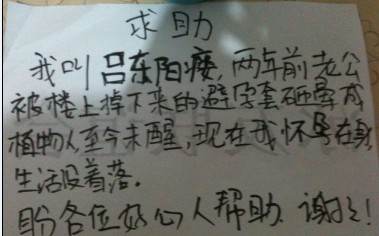 求助
我叫吕东阳痿,两年前老公
被楼上掉下来的避孕套砸晕成
植物人至今未醒,现在我怀孕在身
生活没着落。
盼各位好心人帮助.谢了!